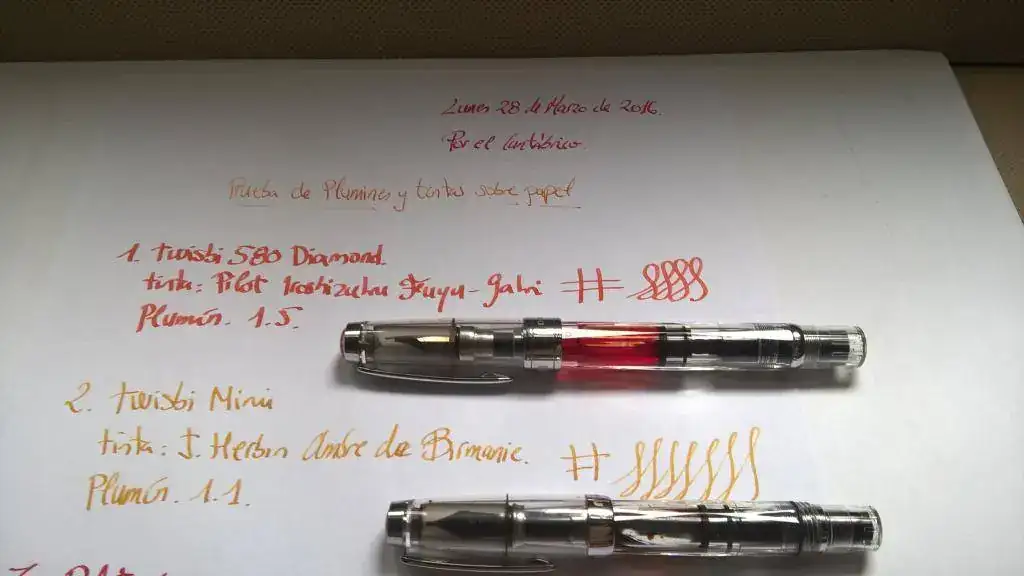 Lunes 28 de Marzo de 2016.
Por el Cantábrico.
Prueba de Plumines y tintas sobre papel
1. twisbi 580 Diamond.
tinta: Pilot Iroshizuku Fuyu-Gaki
Plumín. 1.5.
2. twisbi Mini
tinta: J. Herbin Ambre de Birmanie.
Plumín. 1.1.